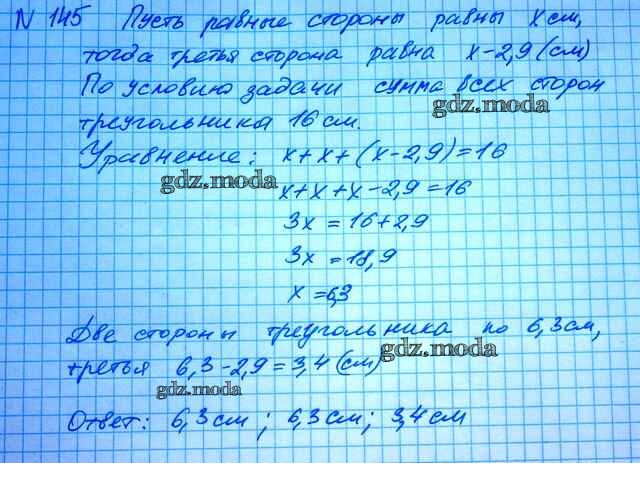 N 145 Пусть равные стороны равны x см,
тогда третья сторона равна x-2,9 (см)
По условию задачи сумма всех сторон
gdz.moda
треугольника 16 см.
Уравнение: x+x+(x-2,9)=16
gdz.moda
x+x+x-2,9=16
3x = 16+2,9
3x = 18,9
x = 6,3
Две стороны треугольника по 6,3 см,
gdz.moda
третья 6,3-2,9=3,4 (см)
gdz.moda
Ответ: 6,3 см; 6,3 см; 3,4 см